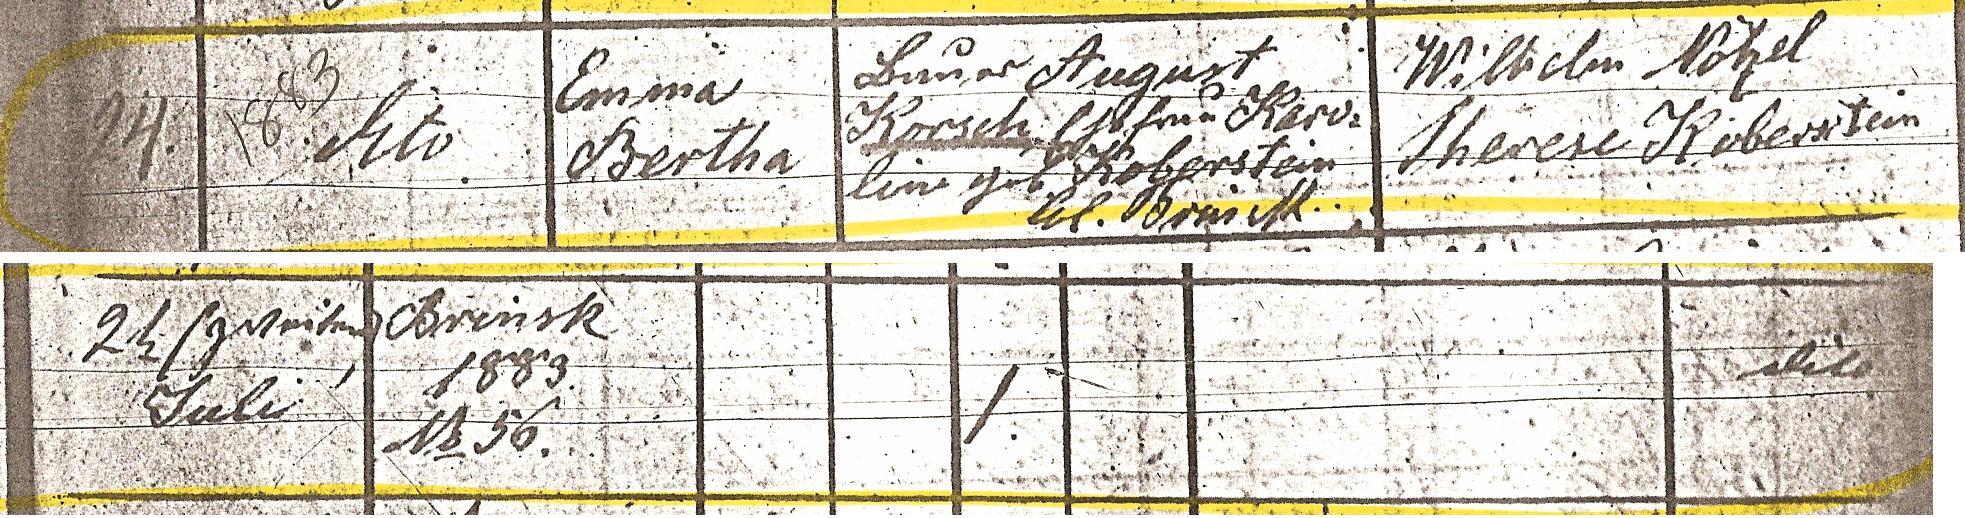 24.
1883
dito.
Emma
Bertha
Bauer August
Korsch Ehefrau Karo:
line geb Koberstein
Kl. Brinsk.
Wilhelm Nötzel
Therese Koberstein
24
Juli
Brinsk
1883.
№ 56.
1.
dito